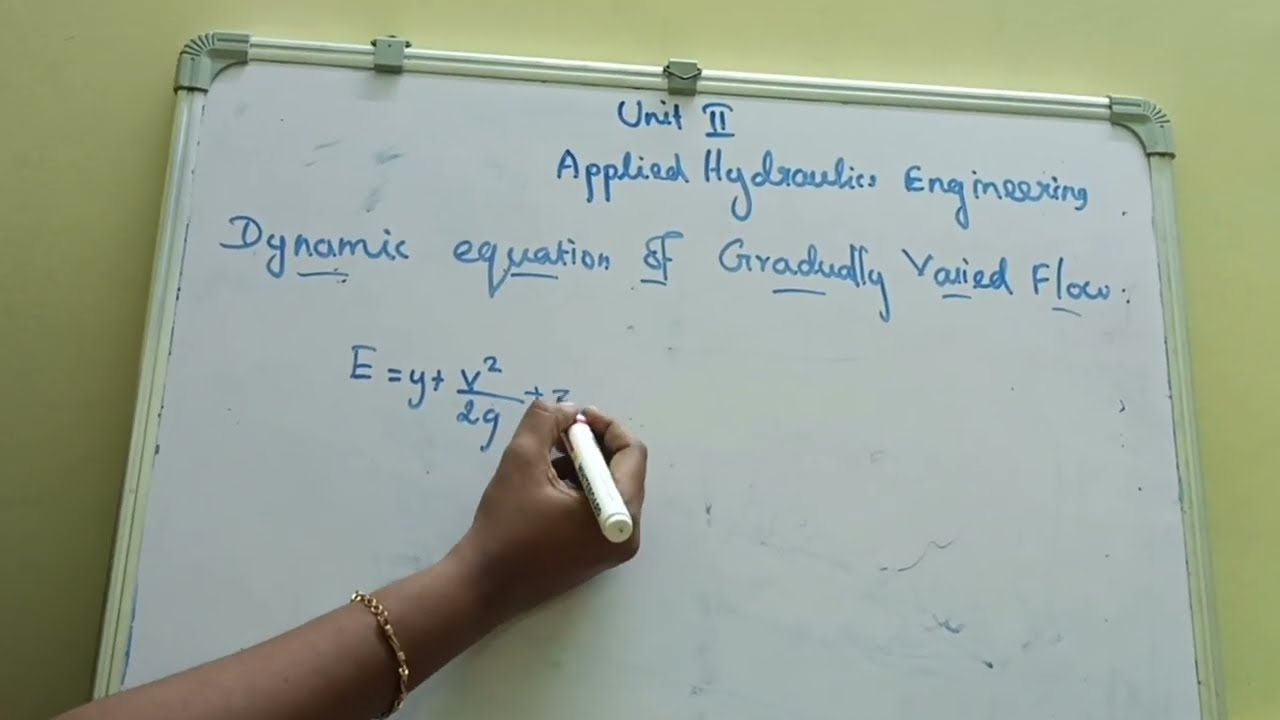 Unit II
Applied Hydraulics Engineering
Dynamic equation of Gradually Varied Flow.
E = y + v²/2g + z